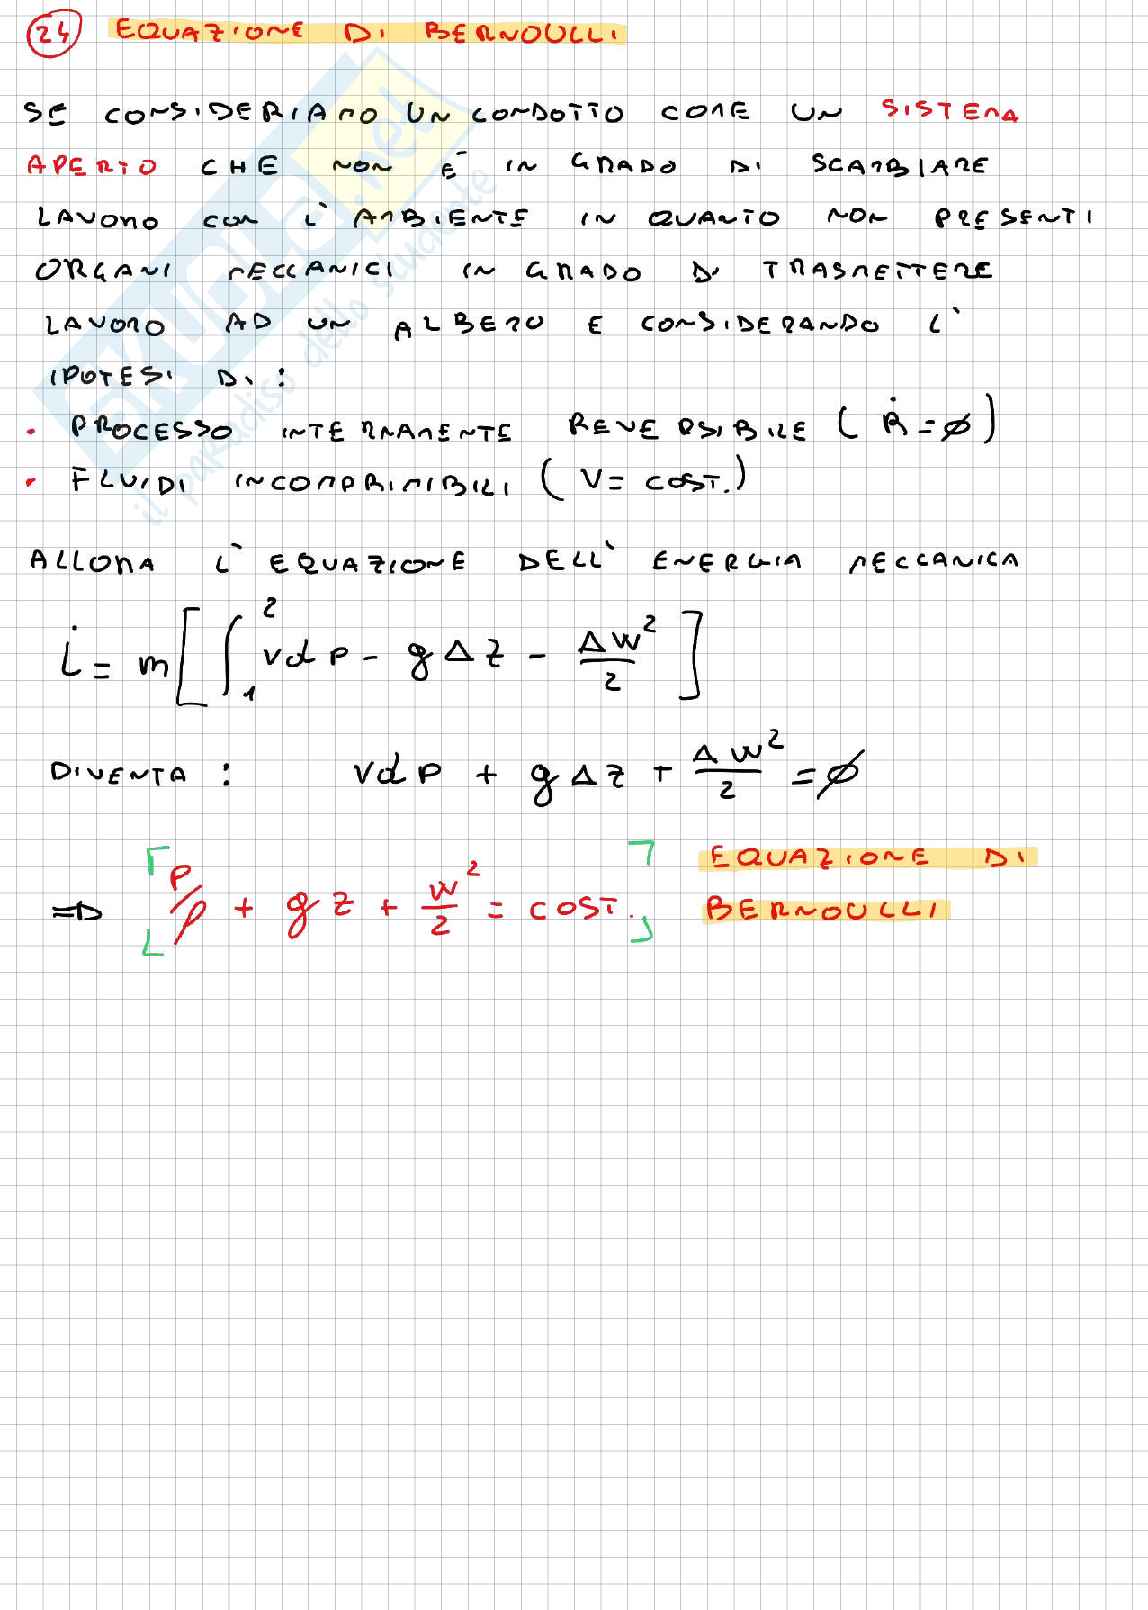 24 EQUAZIONE DI BERNOULLI
SE CONSIDERIAMO UN CONDOTTO COME UN SISTEMA
APERTO CHE NON È IN GRADO DI SCAMBIARE
LAVORO CON L'AMBIENTE IN QUANTO NON PRESENTI
ORGANI MECCANICI IN GRADO DI TRASMETTERE
LAVORO AD UN ALBERO E CONSIDERANDO L'
IPOTESI DI:
• PROCESSO INTERNAMENTE REVERSIBILE (Ṙ=∅)
• FLUIDI INCOMPRIMIBILI (V= COST.)
ALLORA L'EQUAZIONE DELL'ENERGIA MECCANICA
L̇ = m[∫₁² vdP - gΔz - Δw²/2]
DIVENTA: vdP + gΔz + Δw²/2 = ∅
⇒ [P/ρ + gz + w²/2 = COST.] EQUAZIONE DI
BERNOULLI
SKUOLA.net
il paradiso dello studente